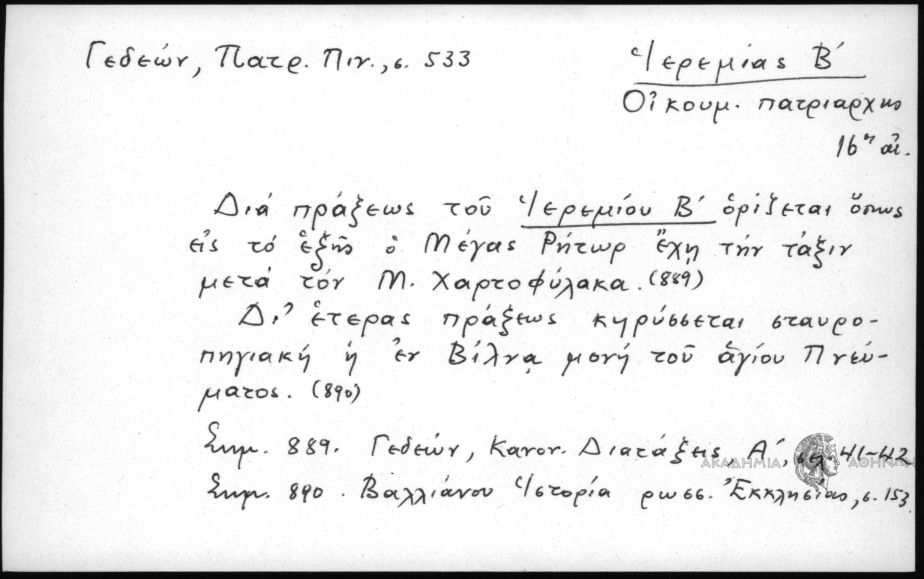 Γεδεών, Πατρ. Πιν., σ. 533
Ἱερεμίας Β΄
Οἰκουμ. πατριάρχης
16η αἰ.
Διά πράξεως τοῦ Ἱερεμίου Β΄ ὁρίζεται ὅπως
εἰς τό ἑξῆς ὁ Μέγας Ρήτωρ ἔχῃ τήν τάξιν
μετά τόν Μ. Χαρτοφύλακα. (889)
Δι' ἑτέρας πράξεως κηρύσσεται σταυρο-
πηγιακή ἡ ἐν Βίλνᾳ μονή τοῦ ἁγίου Πνεύ-
ματος. (890)
Σημ. 889. Γεδεών, Κανον. Διατάξεις, Α΄, σελ. 41-42
Σημ. 890. Βαλλιάνου Ἱστορία ρωσσ. Ἐκκλησίας, σ. 153.
ΑΚΑΔΗΜΙΑ ΑΘΗΝΩΝ